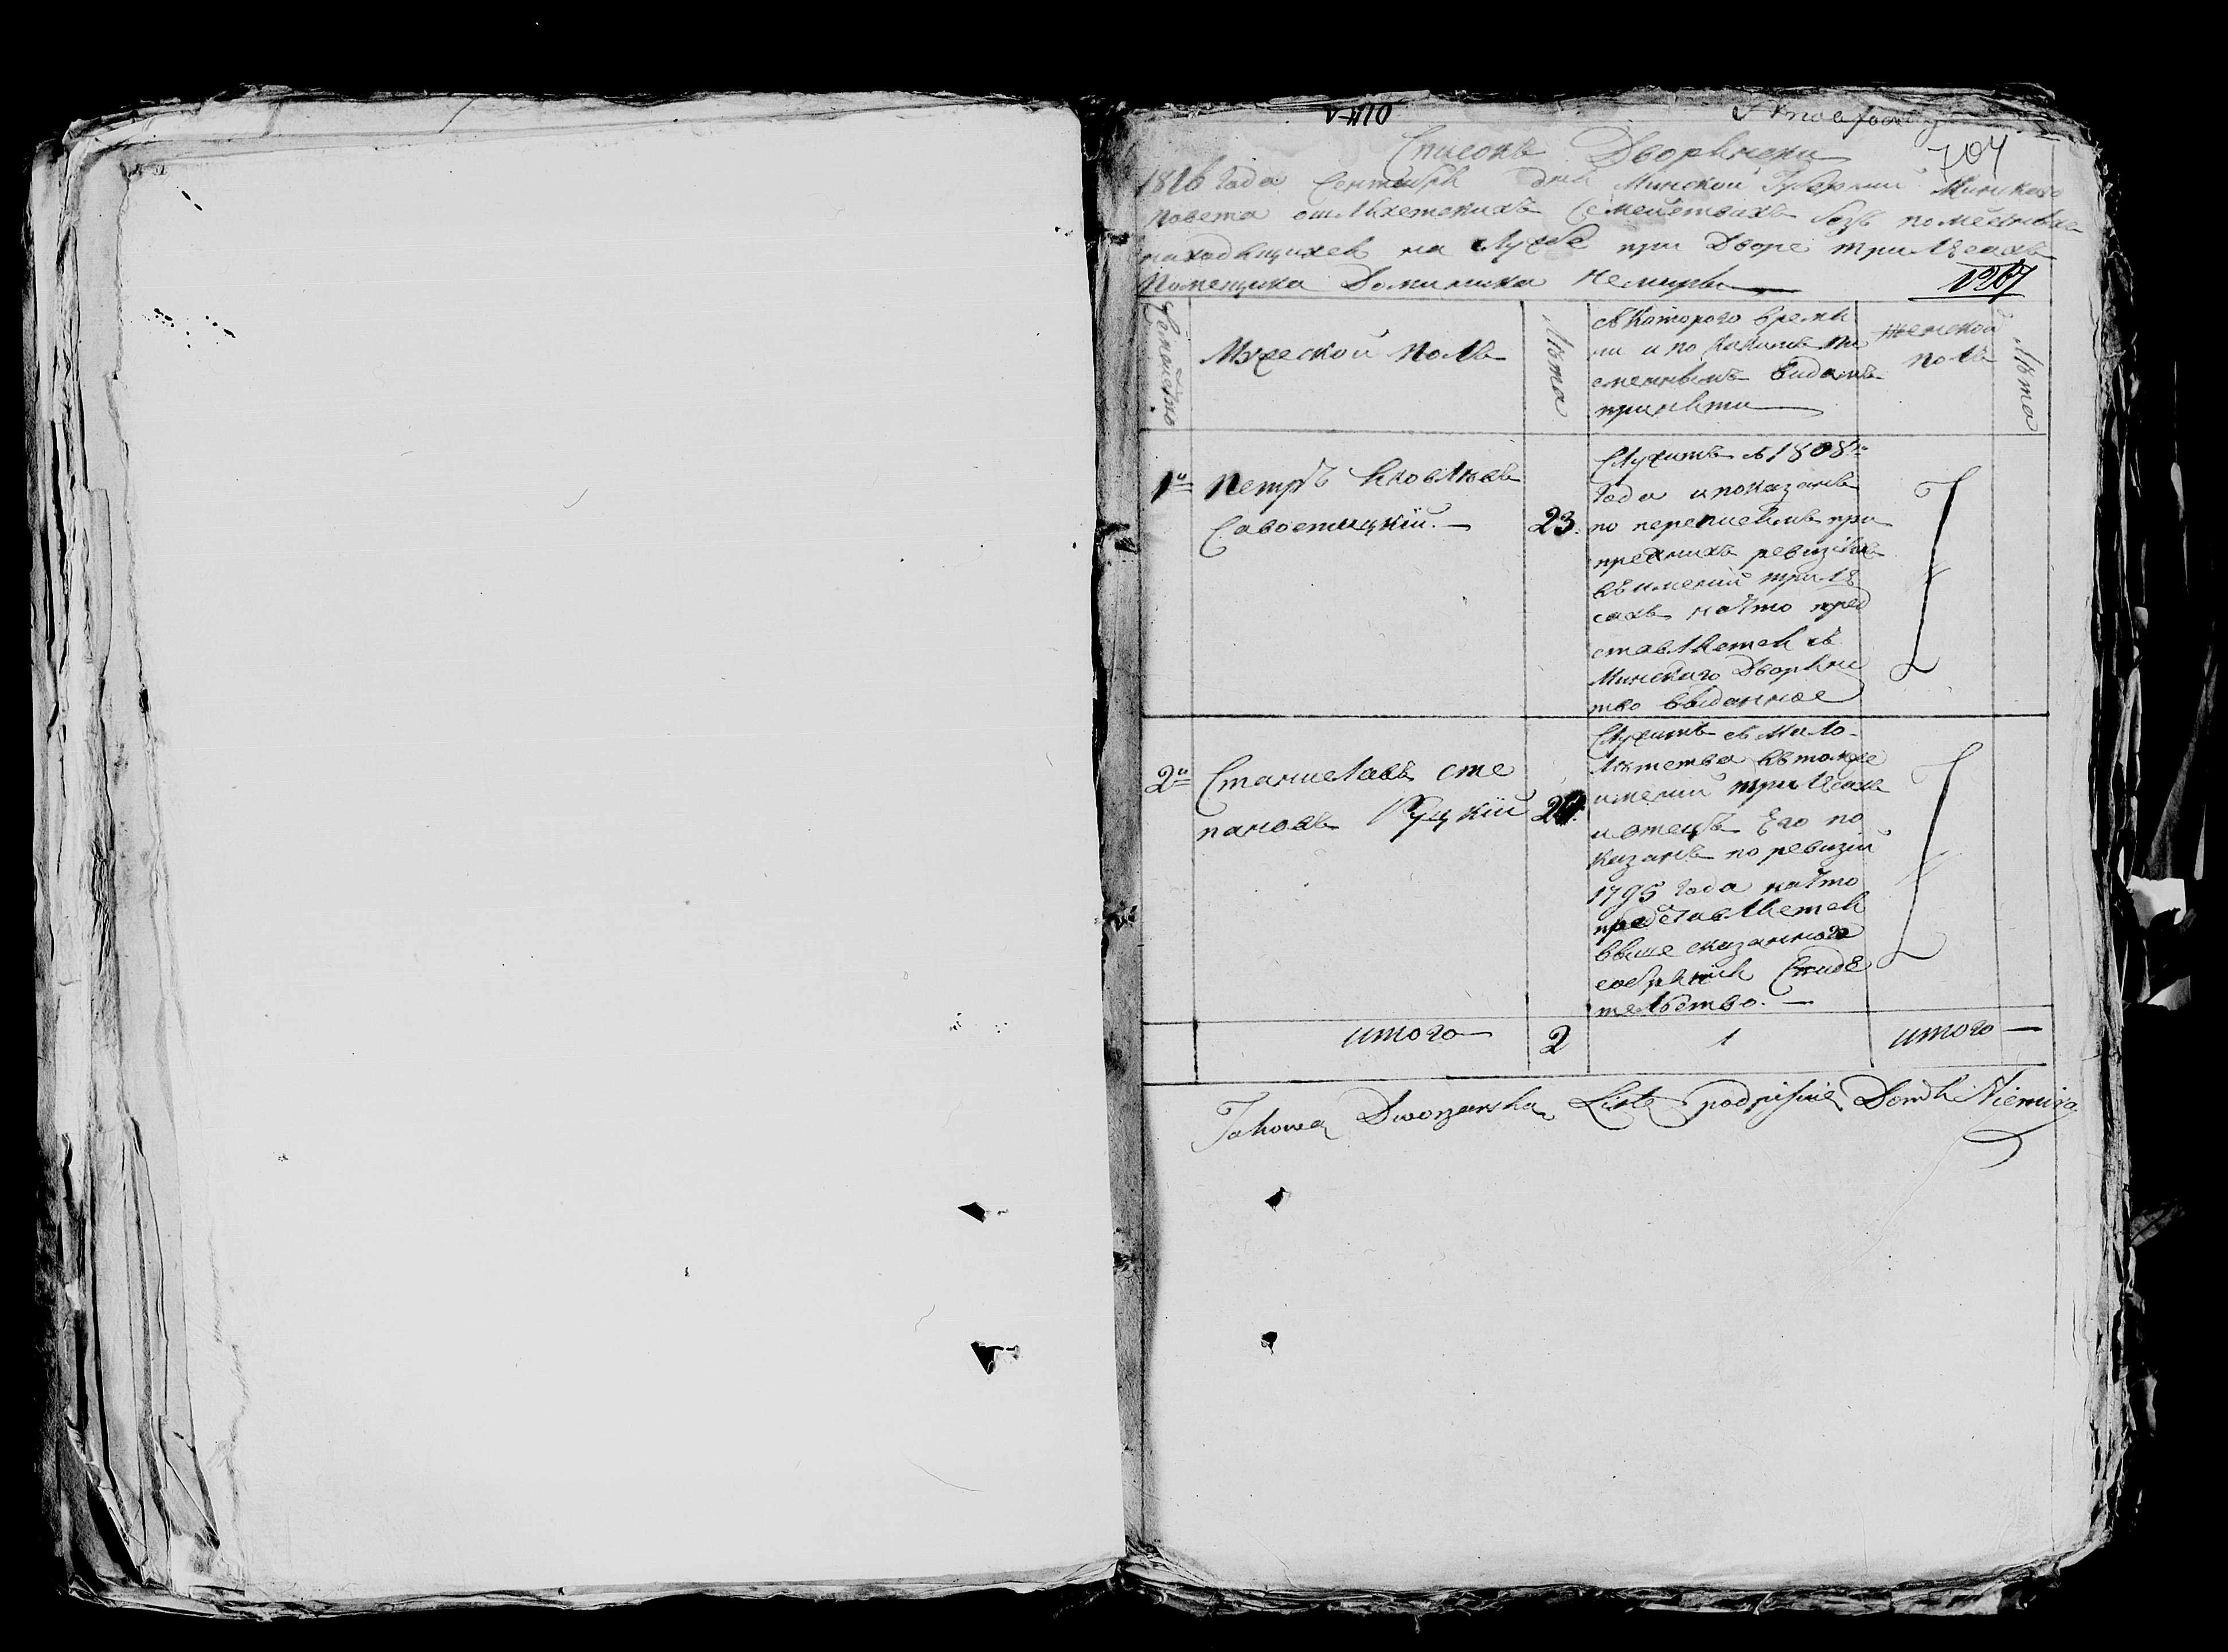 704
Списокъ Дворянски
1816 Года Сентября дня Минской Губернии Минскаго
повета ошляхетскихъ Семействахъ безъ поместныхъ
находящихся на службе при Дворе трилесахъ
Помещика Доминика Немиры
1267
Семейство
Мужеской полъ
Лѣта
съ Которого время
ни и по какимъ пи
сменнымъ видамъ
приняты
Женской
полъ
Лѣта
1й Петръ Яковлевъ
Савостицкій.
23.
Служитъ съ 1808го
Года и показанъ
по переписямъ при
прежнихъ ревизіяхъ
въ имении трилѣ
сахъ на что пред
ставляется съ
Минскаго Дворян
ство выданное
2й Станиславъ сте
пановъ Руцкій
Служитъ съ мало-
лѣтства въ томже
имении трилѣсахъ
и отецъ Его по
казанъ по ревизіи
1795 Года на что
представляется
выше сказанного
собранія Свидѣ
тельство.
итого 2 1 итого
Takową Dworzanską Listę podpisuię Domk Niemira